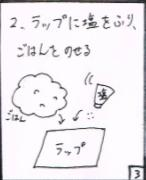 2、ラップに塩をふり、
ごはんをのせる
塩
ごはん
ラップ
3